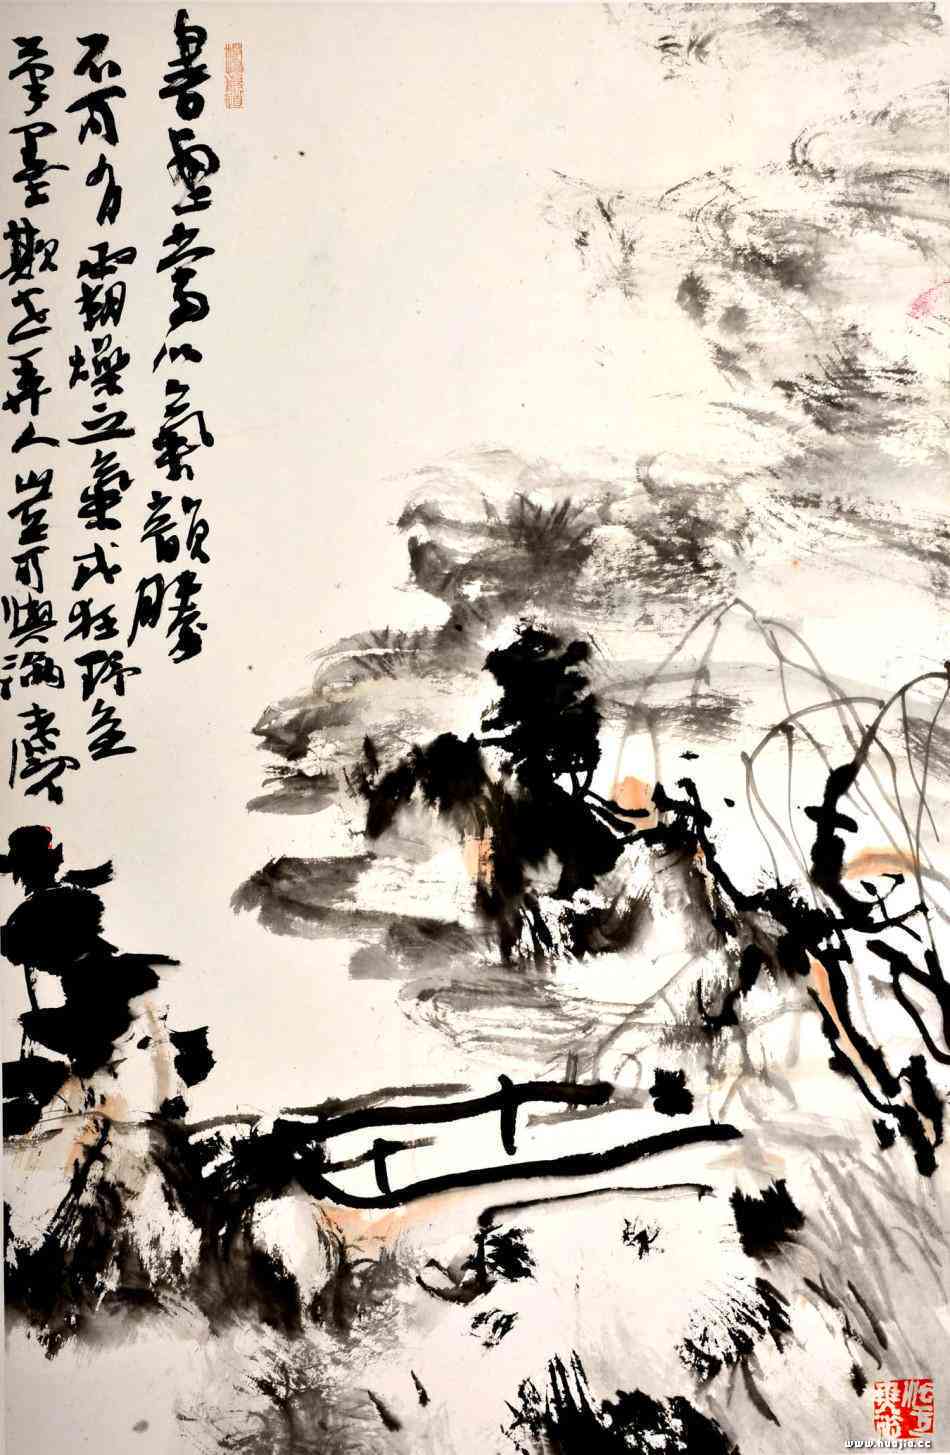 書畫當以氣韻勝
不可有霸燥之氣或狂野
筆墨欺世弄人豈可與
www.huajia.cc